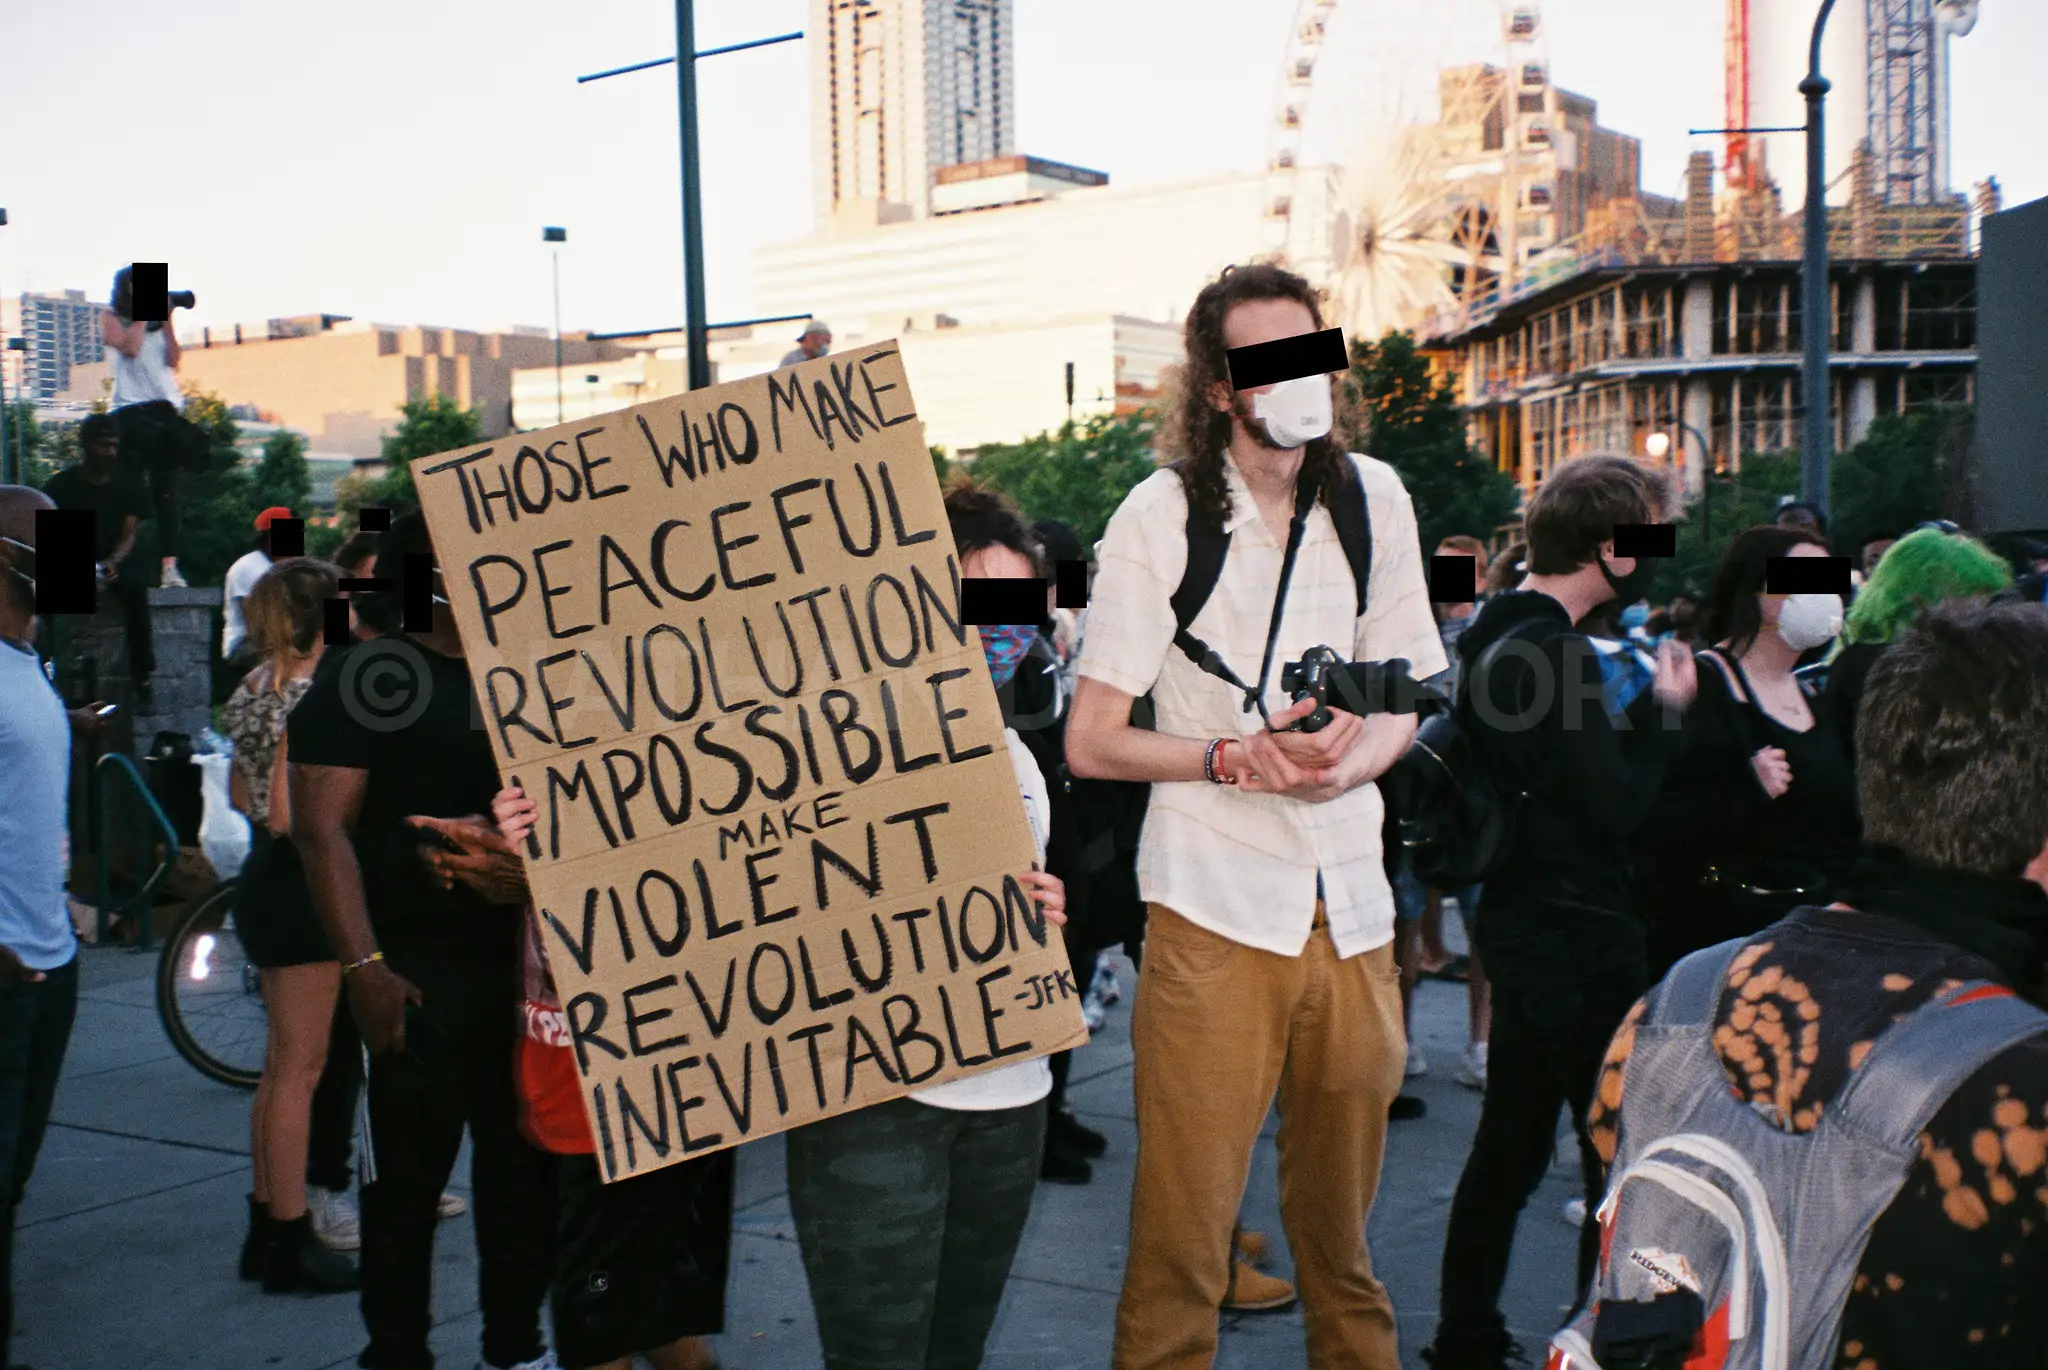 THOSE WHO MAKE
PEACEFUL
REVOLUTION
IMPOSSIBLE
MAKE
VIOLENT
REVOLUTION
INEVITABLE -JFK
©